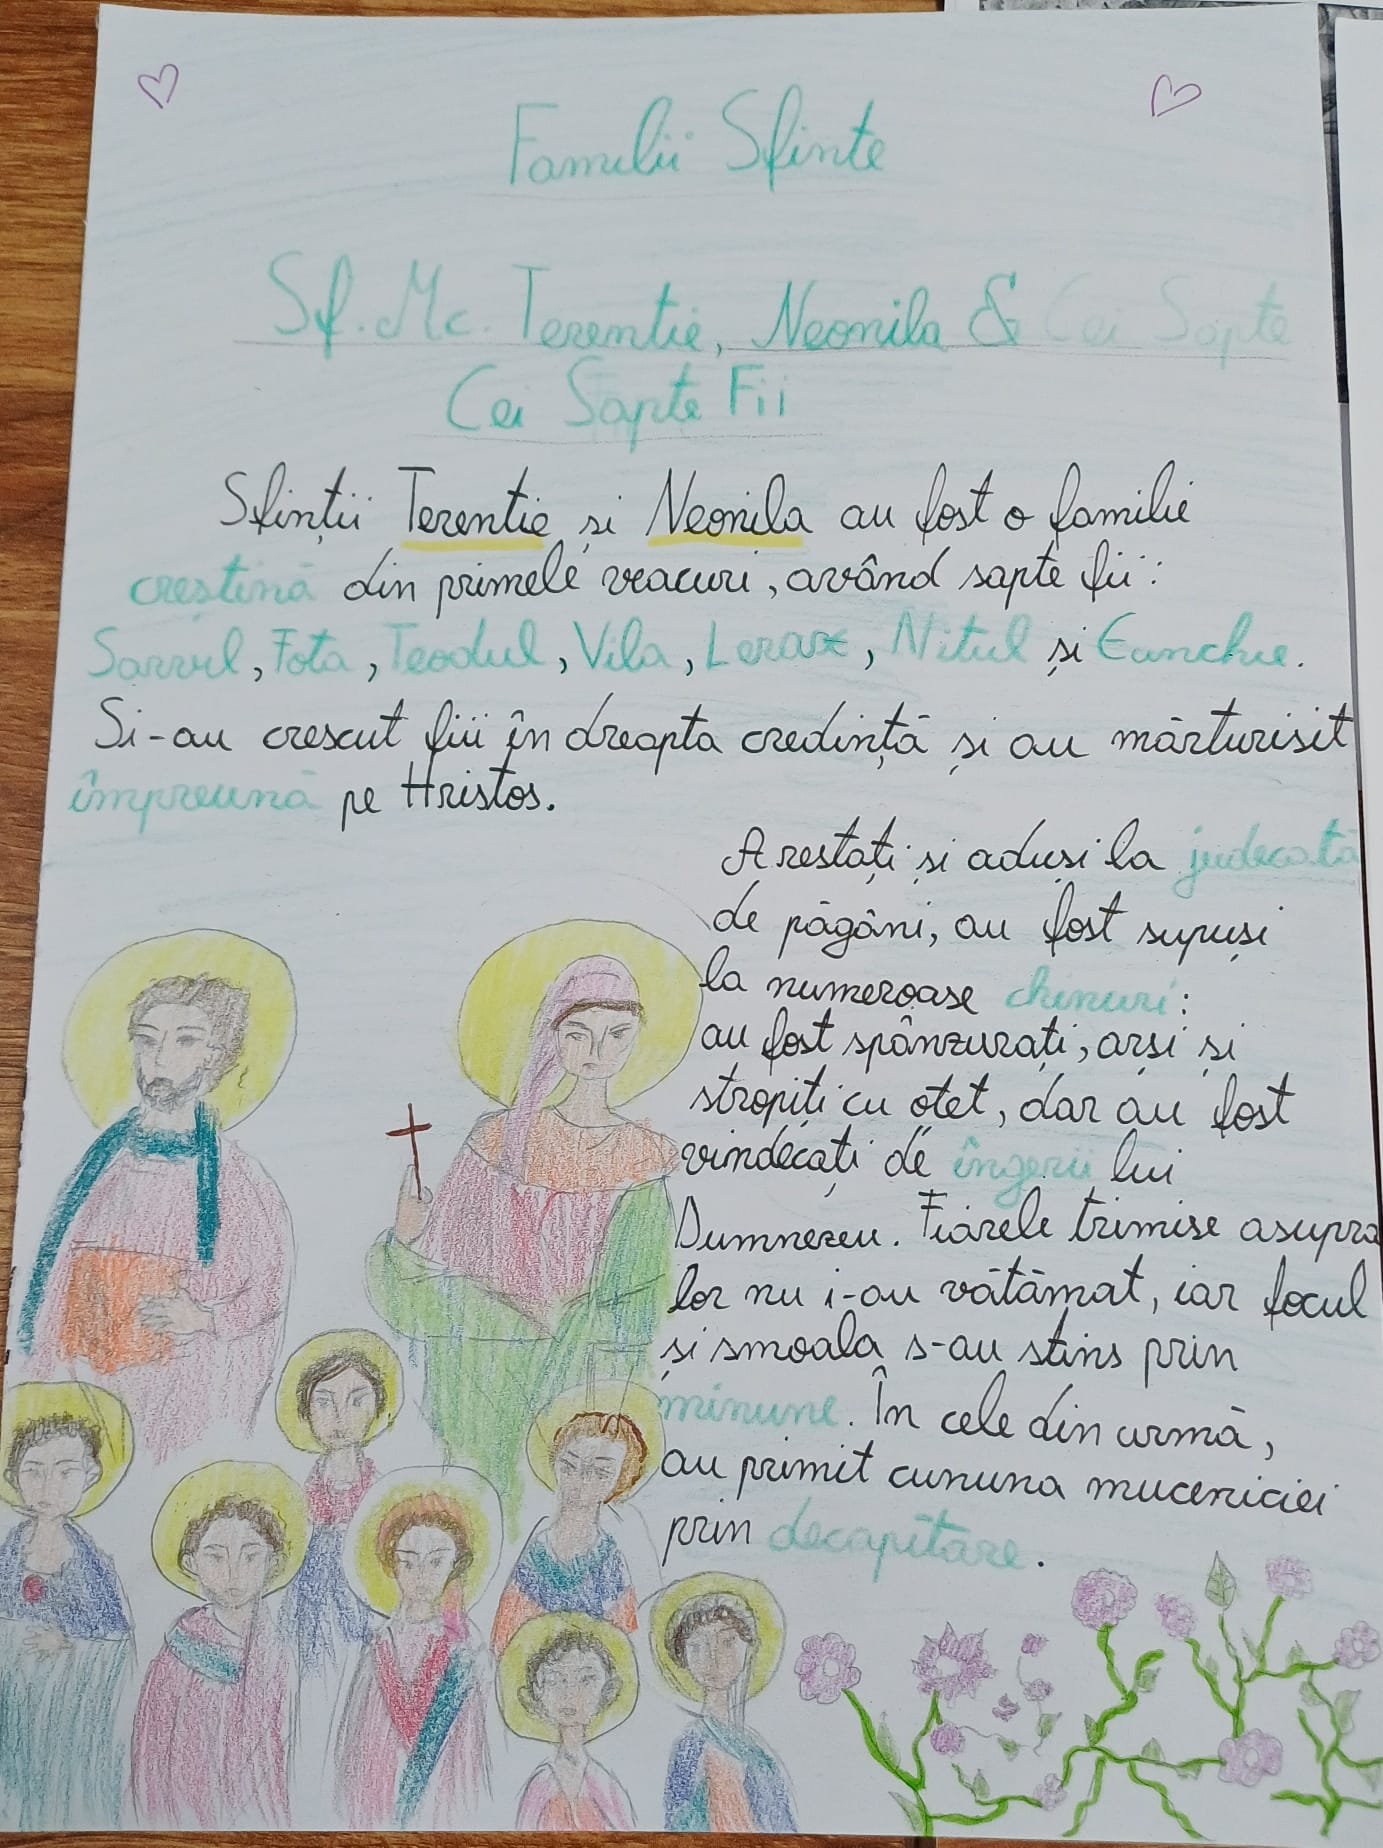 Familii Sfinte
Sf. Mc. Terentie, Neonila & Cei Sapte
Cei Sapte Fii
Sfinții Terentie și Neonila au fost o familie
creștină din primele veacuri, având sapte fii:
Sarvil, Fota, Teodul, Vila, Lerax, Nitul și Eunchie.
Si-au crescut fiii în dreapta credință și au mărturisit
împreună pe Hristos.
Arestați și aduși la judecată
de păgâni, au fost supuși
la numeroase chinuri:
au fost spânzurați, arși și
stropiți cu oțet, dar au fost
vindecați de îngerii lui
Dumnezeu. Fiarele trimise asupra
lor nu i-au vătămat, iar focul
și smoala s-au stins prin
minune. În cele din urmă,
au primit cununa muceniciei
prin decapitare.